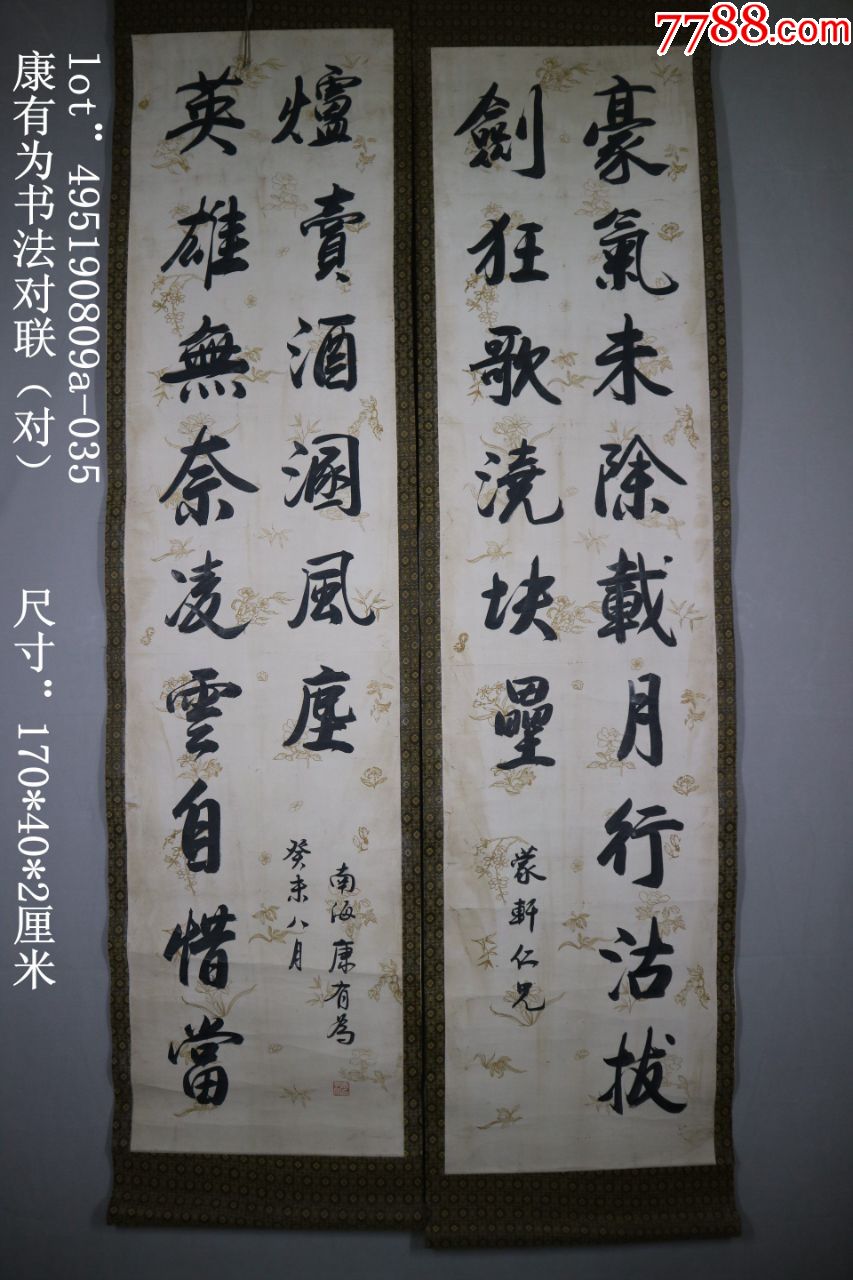 7788.com
豪氣未除載月行沽拔
劍狂歌澆块壘
蒙軒仁兄
英雄無奈凌雲自惜當
爐賣酒溷風塵
癸未八月
南海康有為
lot：495190809a-035
康有为书法对联（对） 尺寸：170*40*2厘米